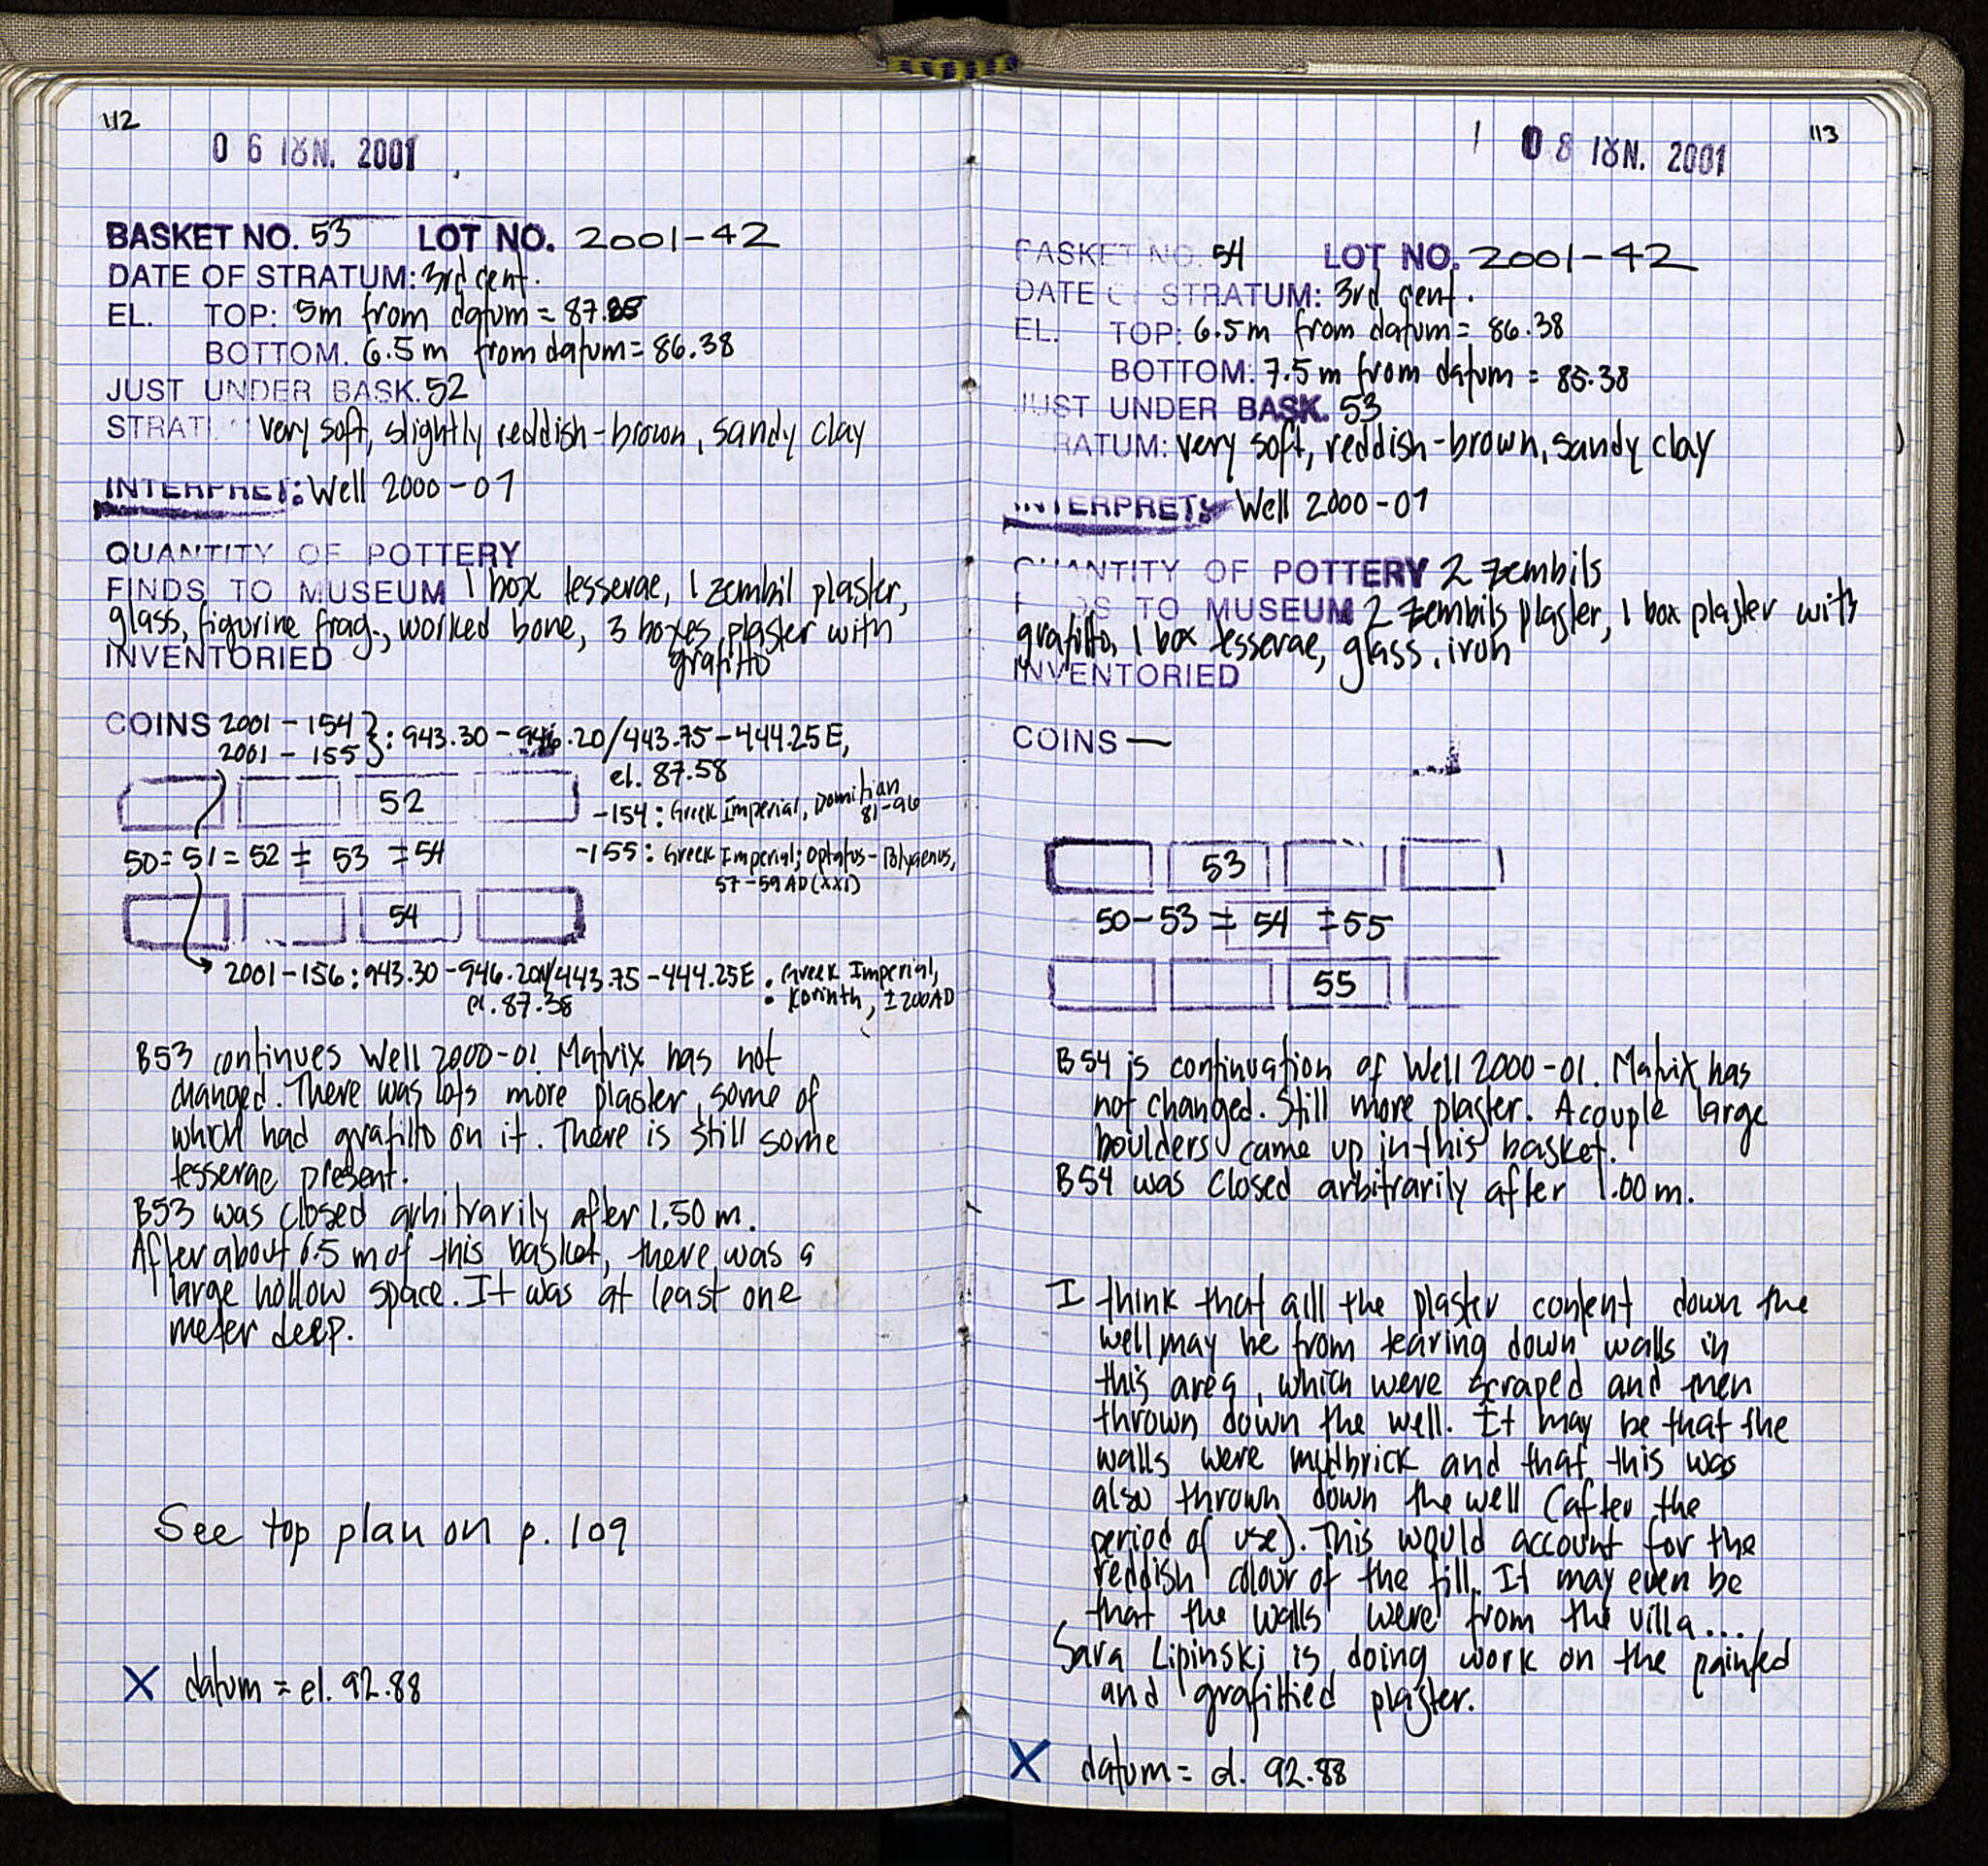 112
06 ΙȣΝ. 2001
BASKET NO. 53 LOT NO. 2001-42
DATE OF STRATUM: 3rd cent.
EL. TOP: 5m from datum = 87.
BOTTOM. 6.5m from datum = 86.38
JUST UNDER BASK. 52
STRAT very soft, slightly reddish-brown, sandy clay
INTERPRET: Well 2000-01
QUANTITY OF POTTERY
FINDS TO MUSEUM 1 box tesserae, 1 zembil plaster,
glass, figurine frag., worked bone, 3 boxes plaster with
grafitto
INVENTORIED
COINS 2001-154 } : 943.30-946.20/443.75-444.25E,
2001-155
el. 87.58
52
-154: Greek Imperial, Domitian
81-96
50=51=52 ∓ 53 ∓ 54
-155: Greek Imperial; Optatus-Polyaenus,
57-59AD (XXI)
54
2001-156: 943.30-946.20N/443.75-444.25E : Greek Imperial,
el. 87.38 Korinth, ±200AD
B53 continues Well 2000-01. Matrix has not
changed. There was lots more plaster, some of
which had grafitto on it. There is still some
tesserae present.
B53 was closed arbitrarily after 1.50 m.
After about 6.5 m of this basket, there was a
large hollow space. It was at least one
meter deep.
See top plan on p. 109
X datum = el. 92.88
113
08 ΙȣΝ. 2001
BASKET NO. 54 LOT NO. 2001-42
DATE OF STRATUM: 3rd cent.
EL. TOP: 6.5m from datum = 86.38
BOTTOM: 7.5m from datum = 85.38
JUST UNDER BASK. 53
RATUM: very soft, reddish-brown, sandy clay
INTERPRET: Well 2000-01
QUANTITY OF POTTERY 2 zembils
TO MUSEUM 2 zembils plaster, 1 box plaster with
grafitto, 1 box tesserae, glass, iron
INVENTORIED
COINS —
53
50-53 ∓ 54 ∓ 55
55
B54 is continuation of Well 2000-01. Matrix has
not changed. Still more plaster. A couple large
boulders came up in this basket.
B54 was closed arbitrarily after 1.00 m.
I think that all the plaster content down the
well may be from tearing down walls in
this area, which were scraped and then
thrown down the well. It may be that the
walls were mudbrick and that this was
also thrown down the well (after the
period of use). This would account for the
reddish colour of the fill. It may even be
that the walls were from the villa...
Sara Lipinski is doing work on the painted
and grafittied plaster.
X datum = el. 92.88